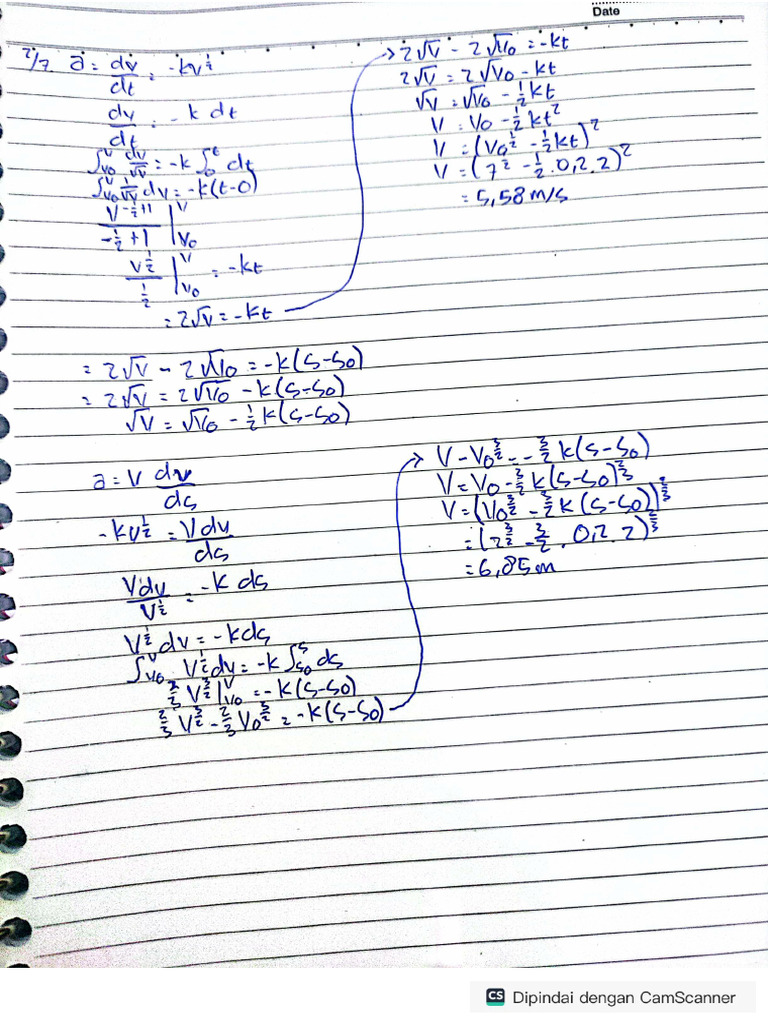 Date
2/7 a = dv/dt = -kv^½
dv/dt = -k dt
∫v₀^v dv/√v = -k ∫₀^t dt
∫v₀^v 1/√v dv = -k(t-0)
v^(-½+1)/(-½+1) |v₀^v
v^½/½ |v₀^v = -kt
= 2√v = -kt
→ 2√v - 2√v₀ = -kt
2√v = 2√v₀ - kt
√v = √v₀ - ½kt
v = v₀ - ½kt²
v = (v₀^½ - ½kt)²
v = (7^½ - ½.0,2.2)²
= 5,58 m/s
= 2√v - 2√v₀ = -k(s-s₀)
= 2√v = 2√v₀ - k(s-s₀)
√v = √v₀ - ½k(s-s₀)
a = v dv/ds
-kv^½ = v dv/ds
v dv/v^½ = -k ds
v^½ dv = -k ds
∫v₀^v v^½ dv = -k ∫s₀^s ds
⅔ v^(3/2) |v₀^v = -k(s-s₀)
⅔ v^(3/2) - ⅔ v₀^(3/2) = -k(s-s₀)
→ v - v₀^(3/2) = -3/2 k(s-s₀)
v = v₀ - 3/2 k(s-s₀)^⅔
v = (v₀^(3/2) - 3/2 k(s-s₀))^⅔
= (7^(3/2) - 3/2 . 0,2.2)^⅔
= 6,85m
CS Dipindai dengan CamScanner